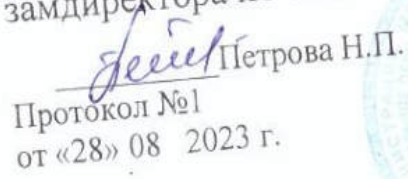 замдиректора
Петрова Н.П.
Протокол №1
от «28» 08 2023 г.